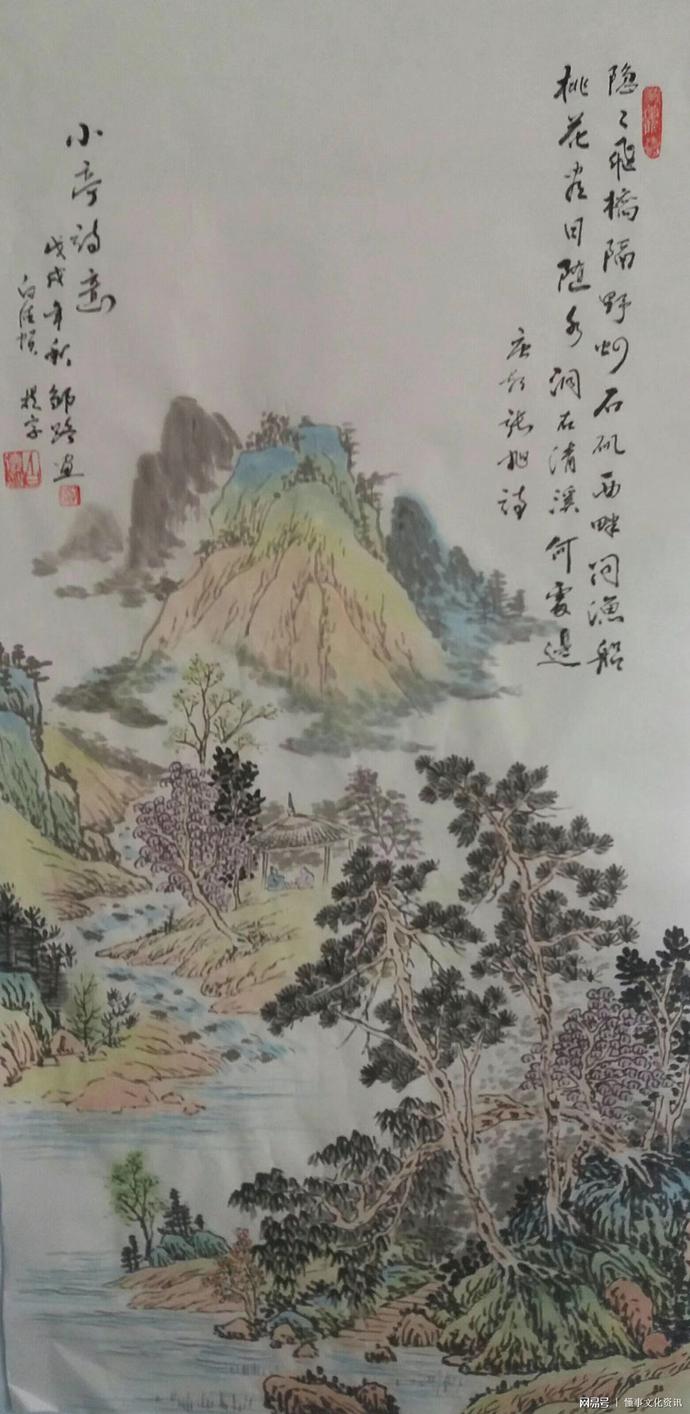 隐〻飛橋隔野烟石矶西畔问漁船
桃花尽日随水流洞在清溪何處边
唐知張旭詩
小奇诗意
戊戌年秋邹路画
题字
网易号 | 懂事文化资讯